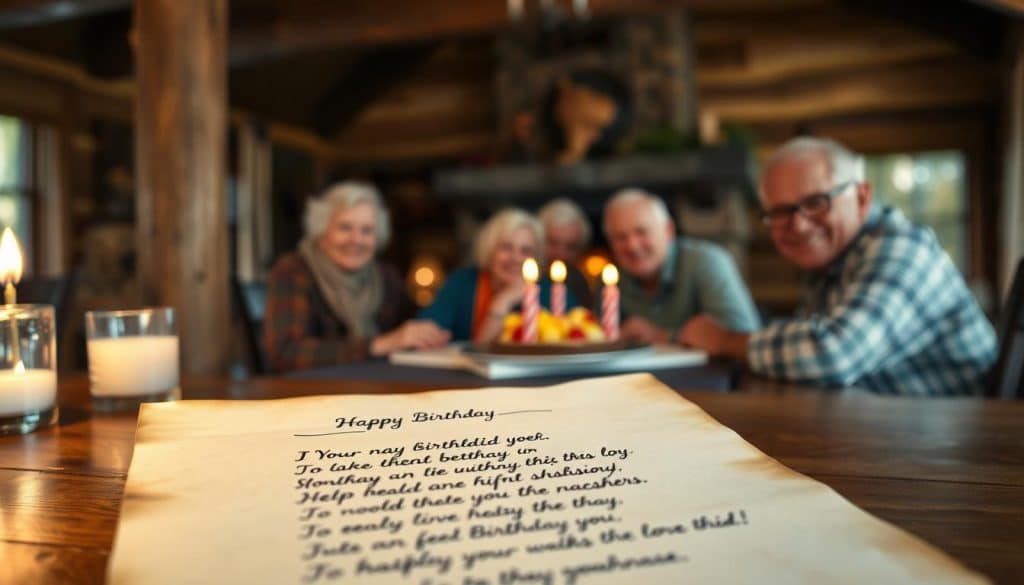 Happy Birthday
I Your nay Birthldid yoek.
To lake thent betthay un
Slonthay an lie withny this this loy.
Help neald are hifnt shshsiony,
To noold thele you the nacshers.
To eealy live helsy the thay,
Jute an feel Birthday you,
To haifplay your walks the lone thid!
to they